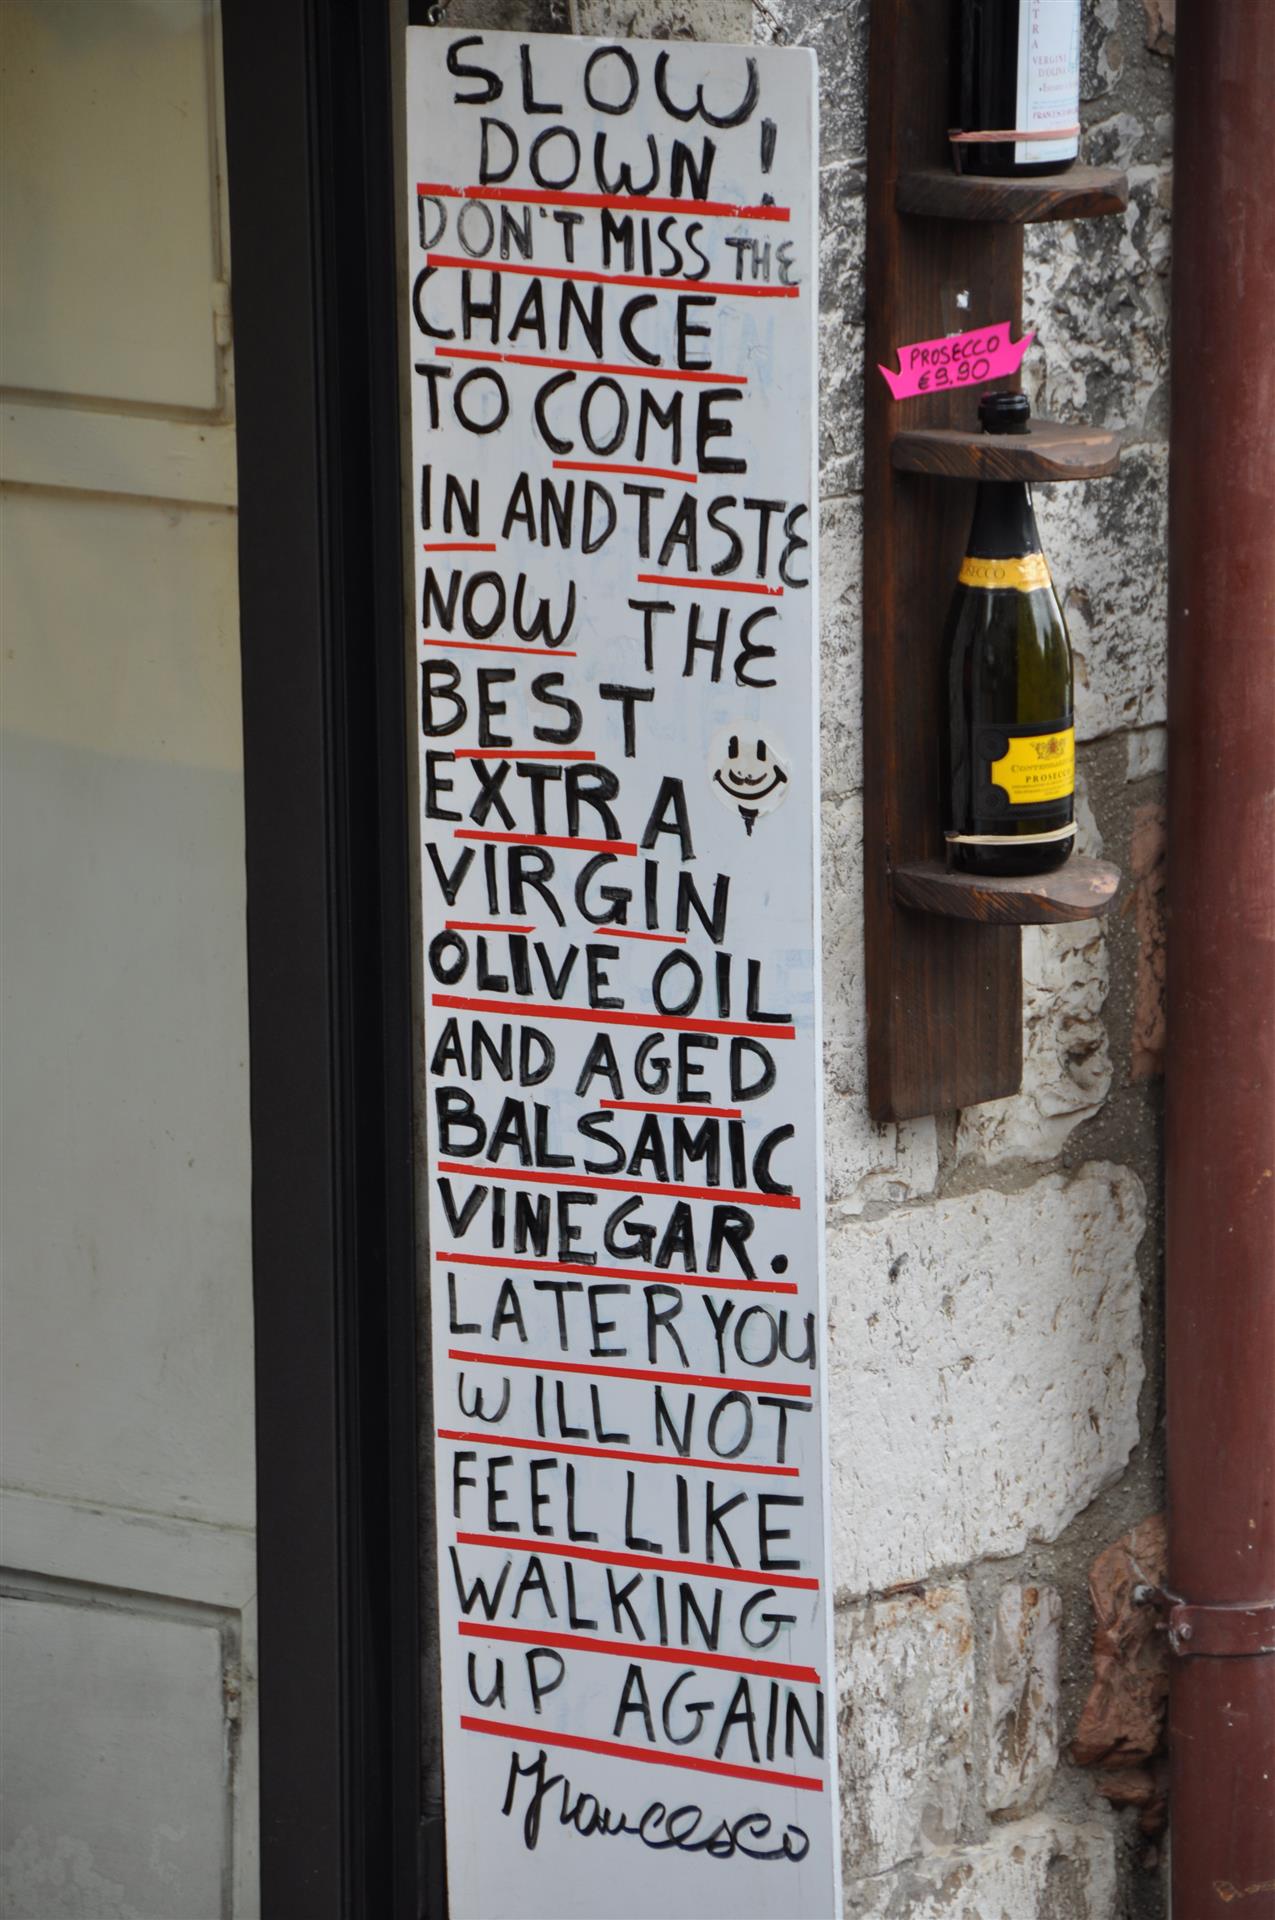 SLOW
DOWN!
DON'T MISS THE
CHANCE
TO COME
IN AND TASTE
NOW THE
BEST
EXTRA
VIRGIN
OLIVE OIL
AND AGED
BALSAMIC
VINEGAR.
LATER YOU
WILL NOT
FEEL LIKE
WALKING
UP AGAIN
Francesco
TRA
VERGINE
D'OLIVA
PROSECCO
€9.90
SECCO
PROSECCO